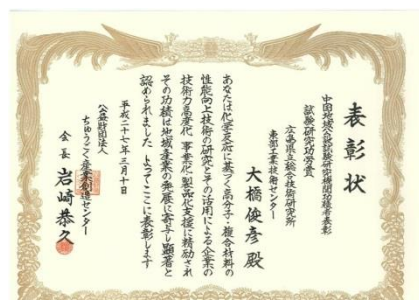 表彰状
中国地域公設試験研究機関功績者表彰
試験研究功労賞
広島県立総合技術研究所
東部工業技術センター
大橋俊彦 殿
あなたは化学反応に基づく高分子・複合材料の
性能向上技術の研究とその活用による企業の
技術力高度化 事業化・製品化支援に精励され
その功績は地域産業の発展に寄与し顕著と
認められました よってここに表彰します
平成二十七年三月十日
公益財団法人
ちゅうごく産業創造センター
会長 岩崎恭久